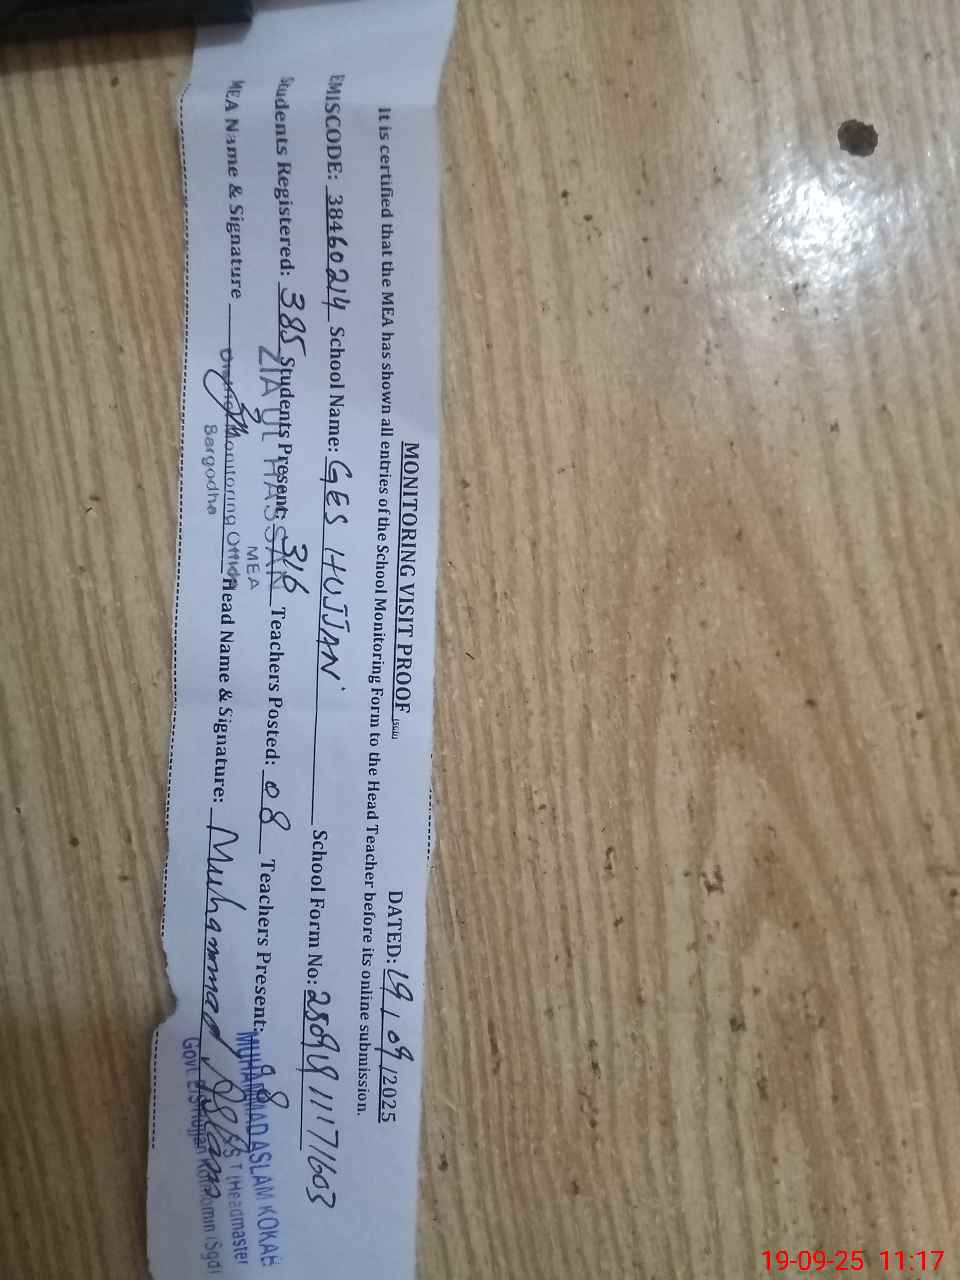 MONITORING VISIT PROOF (SGD) DATED: 19/09/2025
It is certified that the MEA has shown all entries of the School Monitoring Form to the Head Teacher before its online submission.
EMISCODE: 38460214 School Name: GES HUJJAN School Form No: 
Students Registered: 385 Students Present: 316 Teachers Posted: 08 Teachers Present: 08
ZIA UL HASSAN
MEA
MEA Name & Signature Head Name & Signature: Muhammad Aslam
Monitoring Office
Sargodha
MUHAMMAD ASLAM KOKAB
SST (Headmaster
Govt. E/S Hujjan (Sgd)
19-09-25 11:17